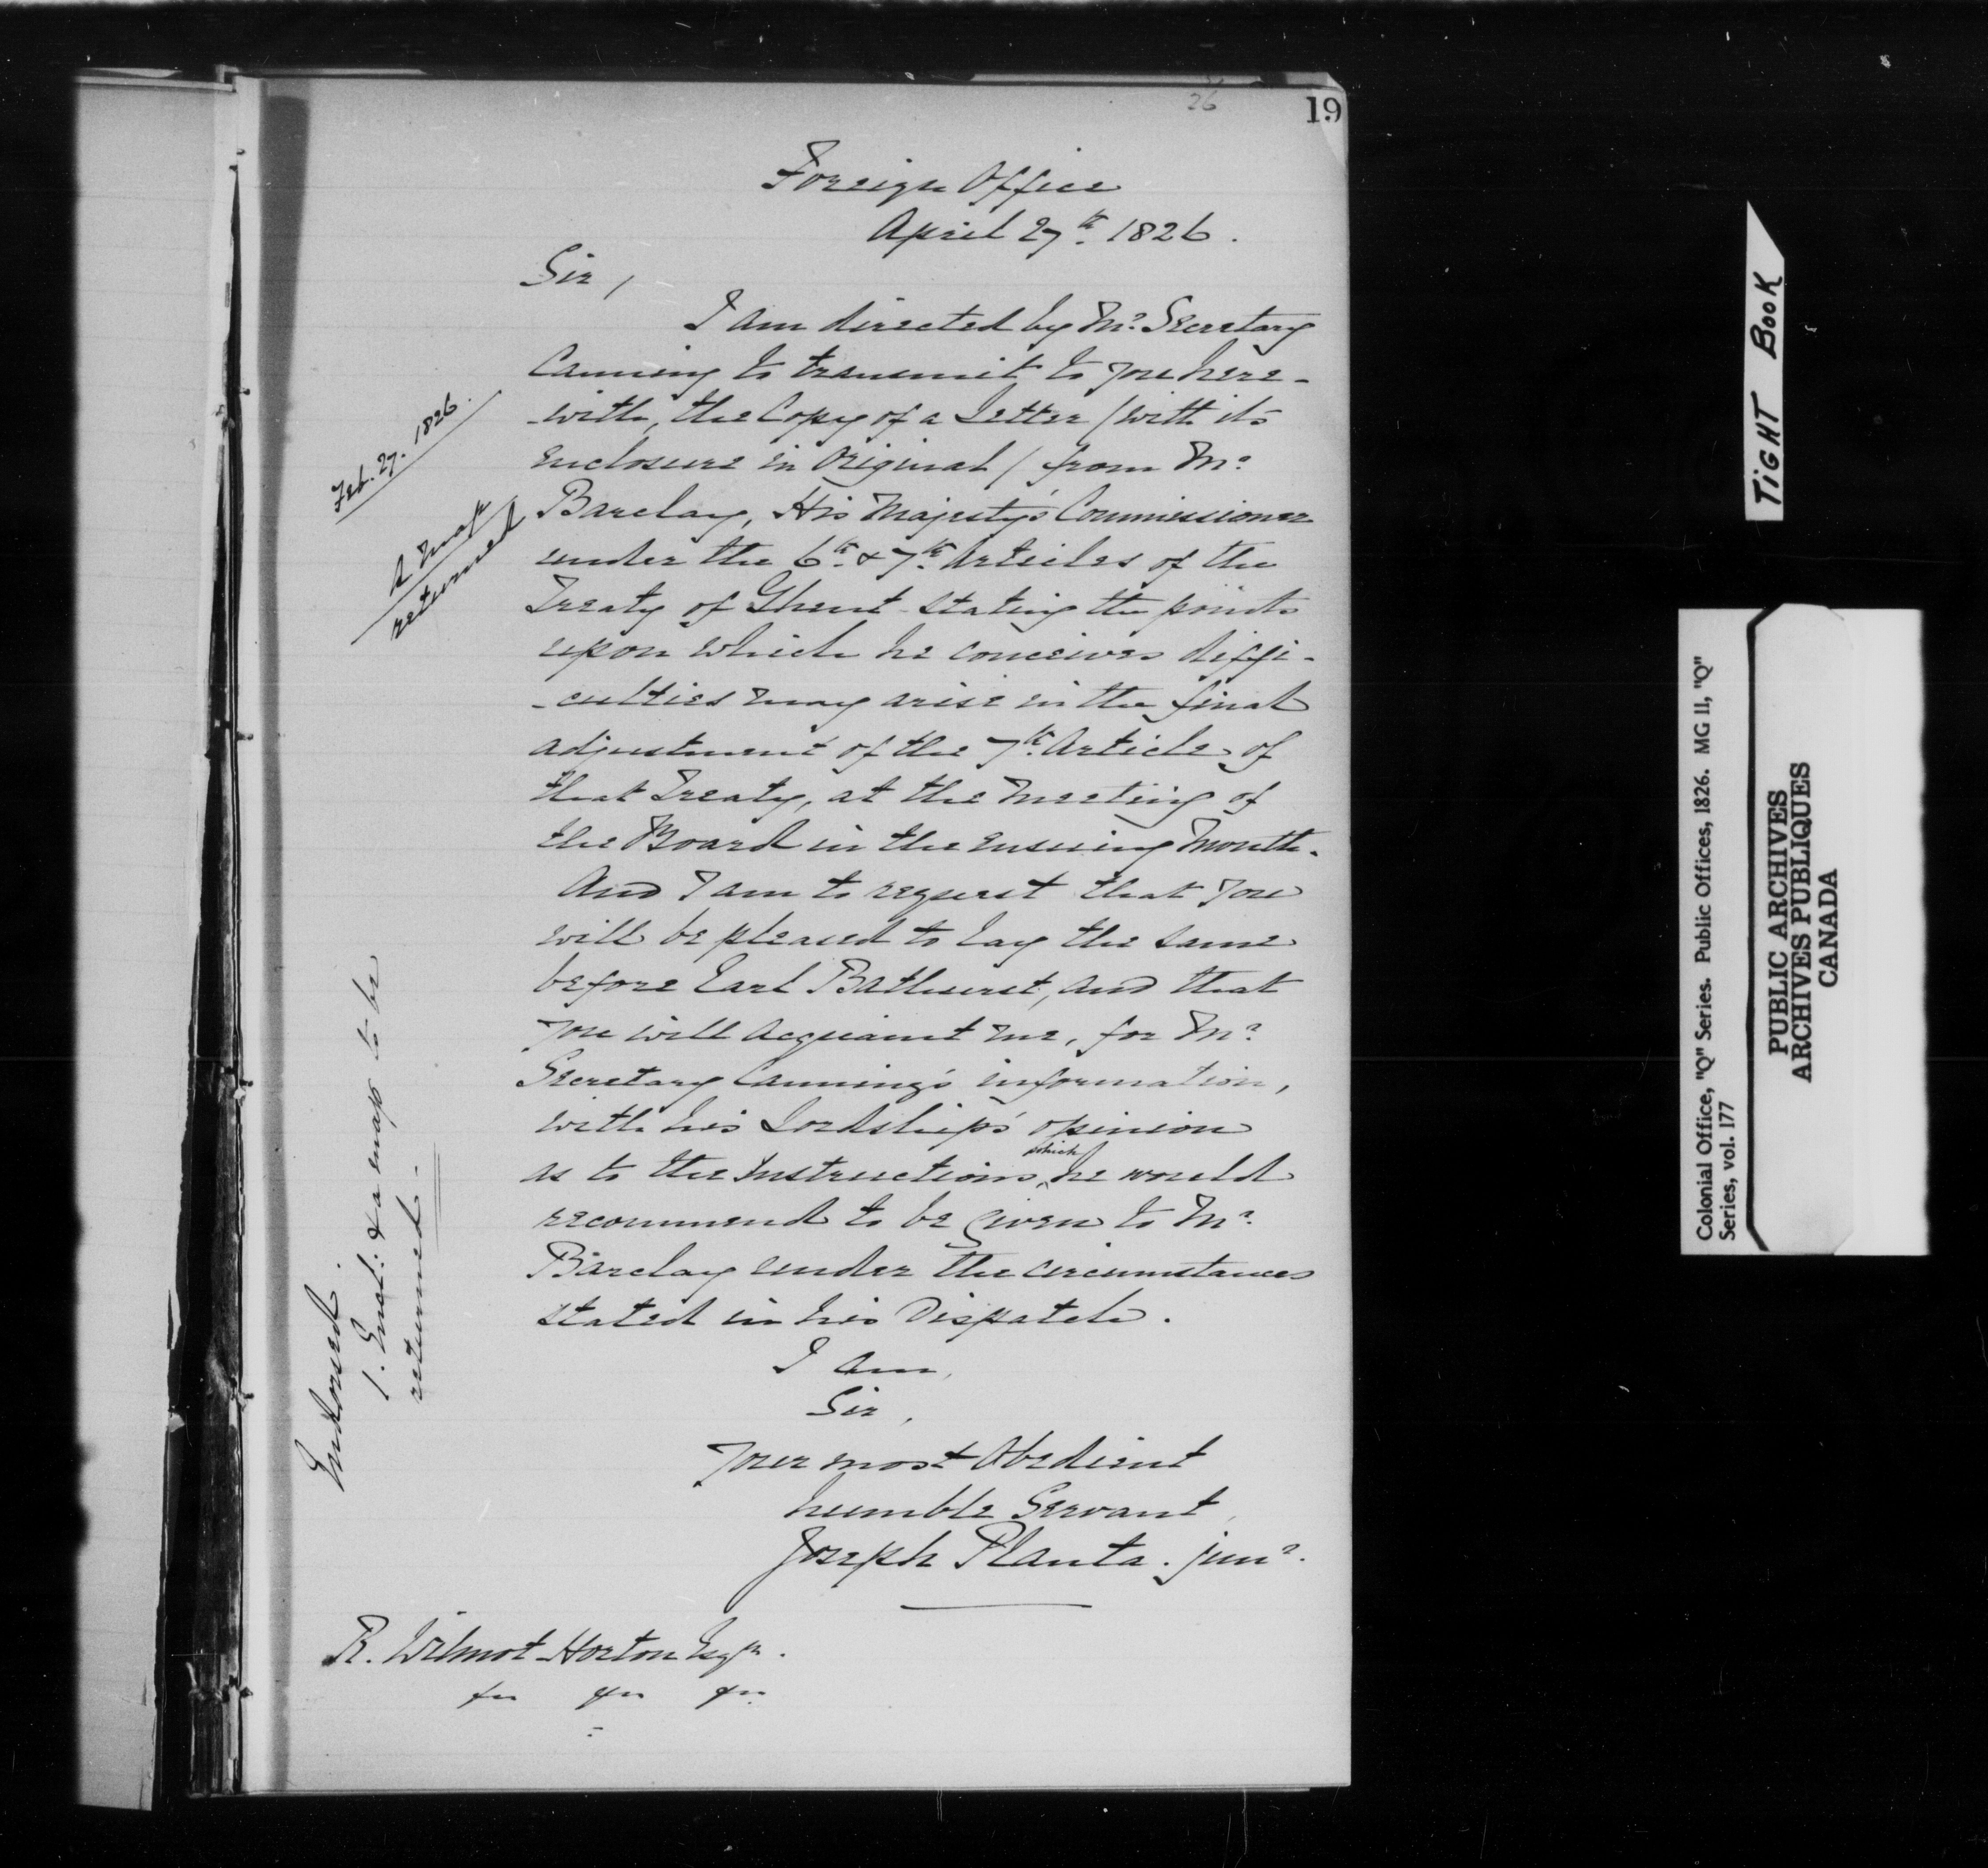 26
19
Foreign Office
April 27th. 1826.
Sir,
I am directed by Mr. Secretary
Canning to transmit to you here-
-with, the Copy of a Letter (with its
enclosure in Original) from Mr.
Barclay, His Majesty's Commissioner
under the 6th. & 7th. Articles of the
Treaty of Ghent stating the points
upon which he conceives diffi-
-culties may arise in the final
adjustment of the 7th. Article of
that Treaty, at the Meeting of
the Board in the ensuing Month.
And I am to request that you
will be pleased to lay the same
before Earl Bathurst, and that
you will acquaint me, for Mr.
Secretary Canning's information,
with his Lordship's opinion
as to the Instructions which he would
recommend to be given to Mr.
Barclay under the circumstances
stated in his Dispatch.
I am,
Sir,
Your most Obedient
humble Servant,
Joseph Planta. junr.
R. Wilmot Horton Esqr.
Feb. 27. 1826.
A Map
returned
Endorsed.
1. Encl: & a map to be
returned.
TIGHT BOOK
Colonial Office, "Q" Series. Public Offices, 1826. MG 11, "Q"
Series, vol. 177
PUBLIC ARCHIVES
ARCHIVES PUBLIQUES
CANADA